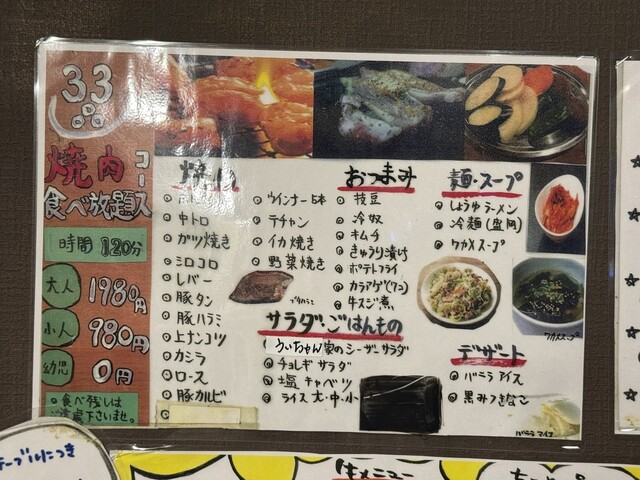 33品
焼肉
コース
食べ放題
時間 120分
大人 1980円
小人 980円
幼児 0円
◎食べ残しは
ご遠慮下さいませ。
中トロ
ガツ焼き
シロコロ
レバー
豚タン
豚ハラミ
上ナンコツ
カシラ
ロース
豚カルビ
ウインナー5本
テチャン
イカ焼き
野菜焼き
おつまみ
枝豆
冷奴
キムチ
きゅうり漬け
ポテトフライ
カラアゲ(7コ)
牛スジ煮
麺・スープ
しょうゆラーメン
冷麺(盛岡)
ワカメスープ
ワカメスープ
サラダ・ごはんもの
家のシーザーサラダ
チョレギサラダ
塩キャベツ
ライス大・中・小
デザート
バニラアイス
黒みつきなこ
バニラアイス
テーブルにつき